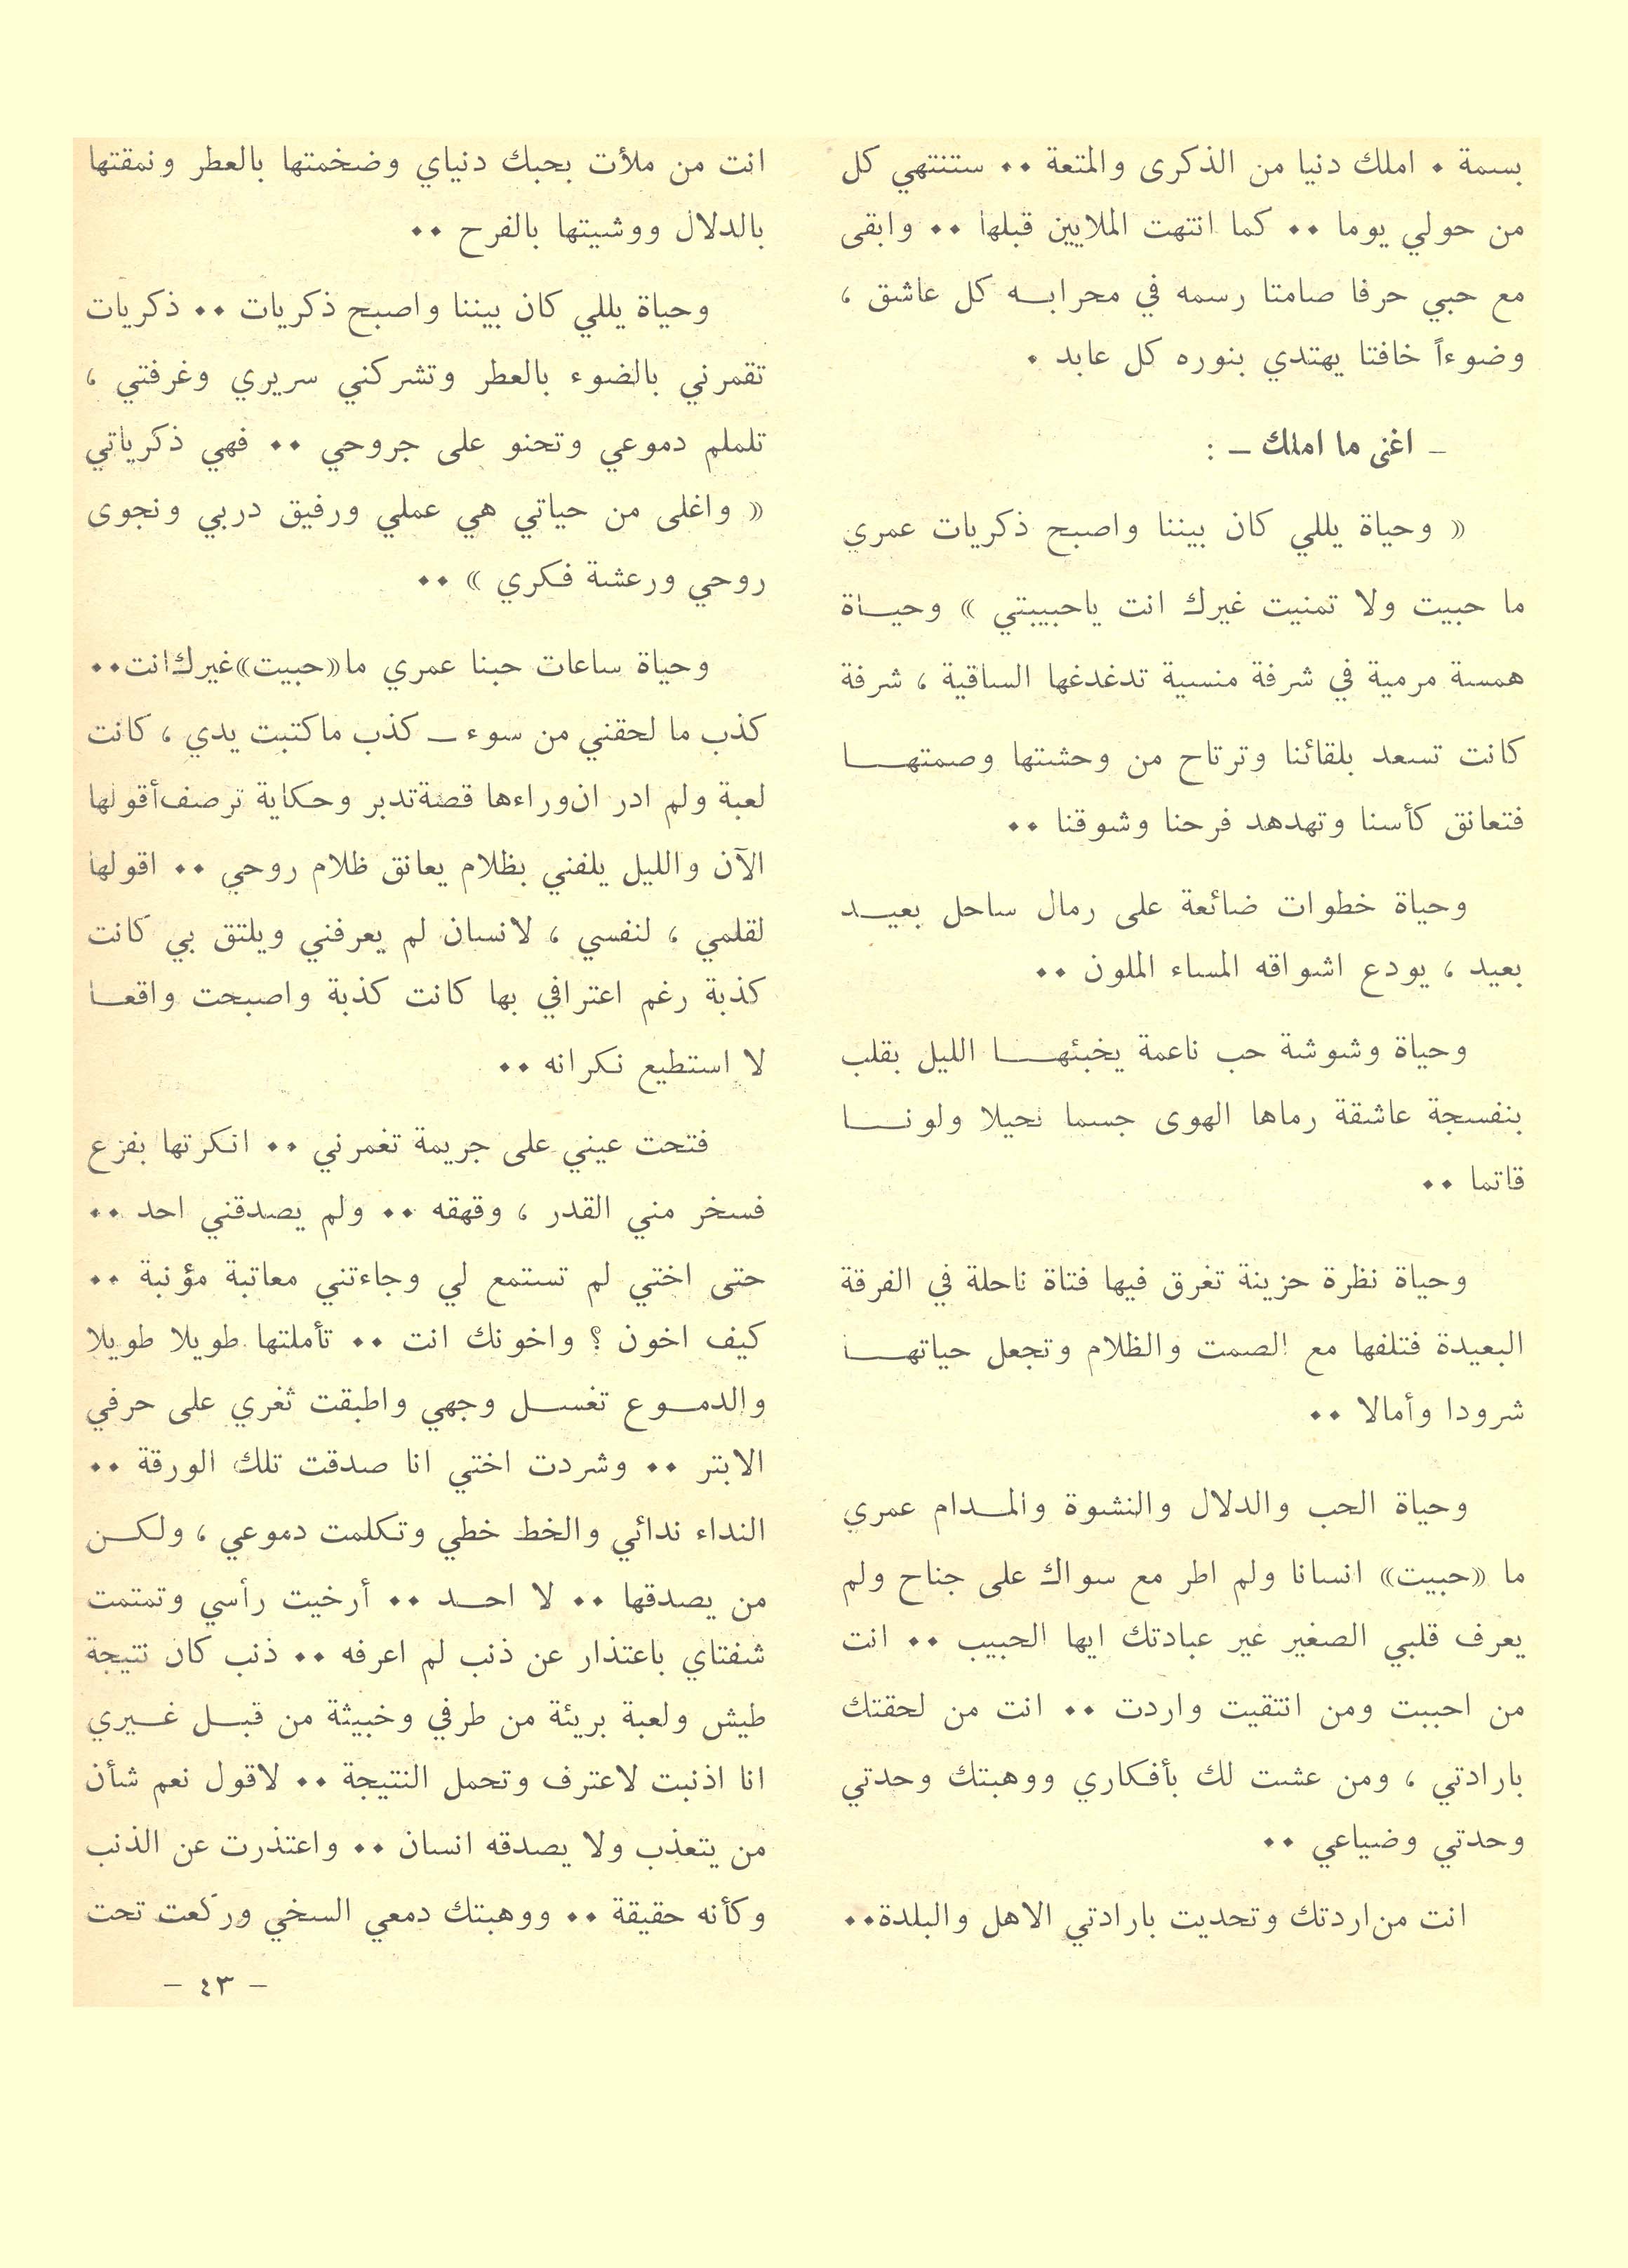 بسمة . املك دنيا من الذكرى والمتعة .. ستنتهي كل
من حولي يوما .. كما انتهت الملايين قبلها .. وابقى
مع حبي حرفا صامتا رسمه في محرابه كل عاشق ،
وضوءاً خافتا يهتدي بنوره كل عابد .
ـ اغنى ما املك ـ :
« وحياة يللي كان بيننا واصبح ذكريات عمري
ما حبيت ولا تمنيت غيرك انت ياحبيبتي » وحياة
همسة مرمية في شرفة منسية تدغدغها الساقية ، شرفة
كانت تسعد بلقائنا وترتاح من وحشتها وصمتها
فتعانق كأسنا وتهدهد فرحنا وشوقنا ..
وحياة خطوات ضائعة على رمال ساحل بعيد
بعيد ، يودع اشواقه المساء الملون ..
وحياة وشوشة حب ناعمة يخبئها الليل بقلب
بنفسجة عاشقة رماها الهوى جسما نحيلا ولونا
قاتما ..
وحياة نظرة حزينة تغرق فيها فتاة ناحلة في الفرقة
البعيدة فتلفها مع الصمت والظلام وتجعل حياتها
شرودا وأمالا ..
وحياة الحب والدلال والنشوة والمدام عمري
ما «حبيت» انسانا ولم اطر مع سواك على جناح ولم
يعرف قلبي الصغير غير عبادتك ايها الحبيب .. انت
من احببت ومن انتقيت واردت .. انت من لحقتك
بارادتي ، ومن عشت لك بأفكاري ووهبتك وحدتي
وحدتي وضياعي ..
انت من اردتك وتحديت بارادتي الاهل والبلدة..
انت من ملأت بحبك دنياي وضخمتها بالعطر ونمقتها
بالدلال ووشيتها بالفرح ..
وحياة يللي كان بيننا واصبح ذكريات .. ذكريات
تقمرني بالضوء بالعطر وتشركني سريري وغرفتي ،
تلملم دموعي وتحنو على جروحي .. فهي ذكرياتي
« واغلى من حياتي هي عملي ورفيق دربي ونجوى
روحي ورعشة فكري » ..
وحياة ساعات حبنا عمري ما«حبيت»غيرك انت..
كذب ما لحقني من سوء ـ كذب ماكتبت يدي ، كانت
لعبة ولم ادر ان وراءها قصة تدبر وحكاية ترصف أقولها
الآن والليل يلفني بظلام يعانق ظلام روحي .. اقولها
لقلمي ، لنفسي ، لانسان لم يعرفني ويلتق بي كانت
كذبة رغم اعترافي بها كانت كذبة واصبحت واقعا
لا استطيع نكرانه ..
فتحت عيني على جريمة تغمرني .. انكرتها بفزع
فسخر مني القدر ، وقهقه .. ولم يصدقني احد ..
حتى اختي لم تستمع لي وجاءتني معاتبة مؤنبة ..
كيف اخون ؟ واخونك انت .. تأملتها طويلا طويلا
والدموع تغسل وجهي واطبقت ثغري على حرفي
الابتر .. وشردت اختي انا صدقت تلك الورقة ..
النداء ندائي والخط خطي وتكلمت دموعي ، ولكن
من يصدقها .. لا احد .. أرخيت رأسي وتمتمت
شفتاي باعتذار عن ذنب لم اعرفه .. ذنب كان نتيجة
طيش ولعبة بريئة من طرفي وخبيثة من قبل غيري
انا اذنبت لاعترف وتحمل النتيجة .. لاقول نعم شأن
من يتعذب ولا يصدقه انسان .. واعتذرت عن الذنب
وكأنه حقيقة .. ووهبتك دمعي السخي وركعت تحت
– ٤٣ –